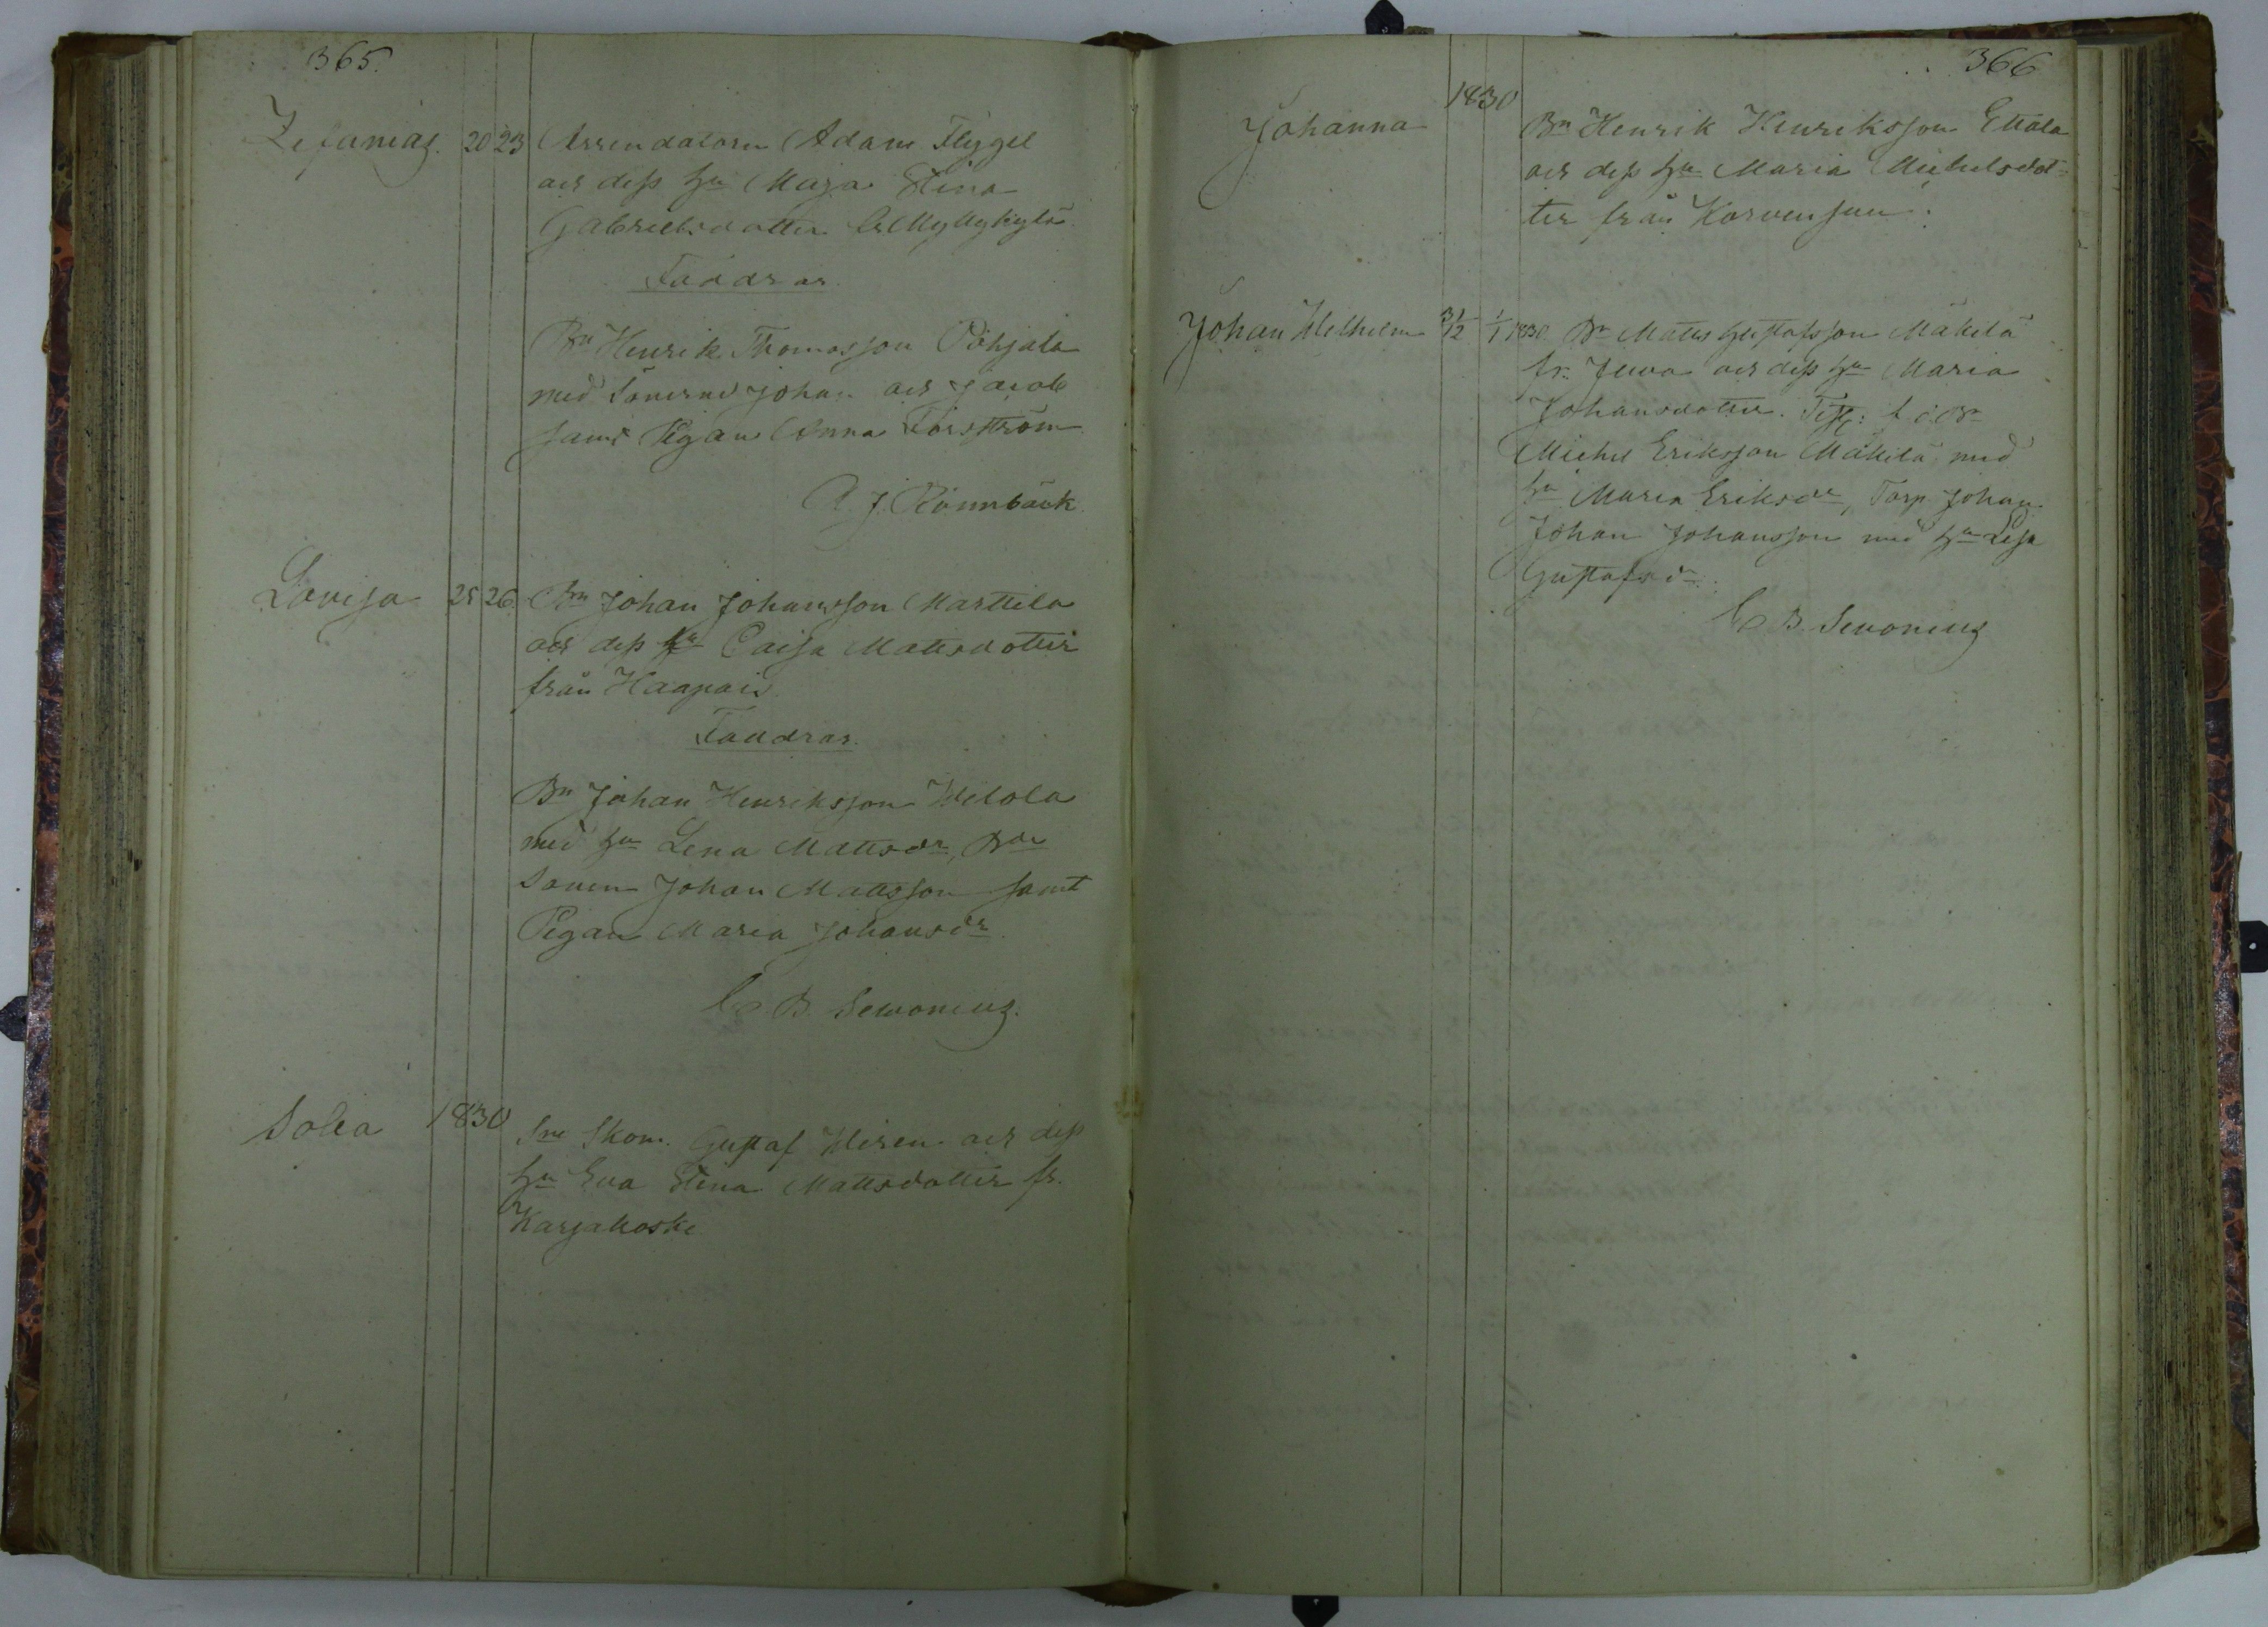 365.
Zefanias. 20 23 Arrendatorn Adam Flygel
och dess hu Maja Stina
Gabrielsdotter fr Myllykylä
Faddrar.
Bn Henrik Thomasson Pohjala
med Sönerne Johan och Jacob
samt Pigan Anna Forsström
A. J. Rönnbäck.
Lovisa 25 26. Bn Johan Johansson Marttila
och dess hu Caisa Mattsdotter
från Haapais
Faddrar.
Bn Johan Henriksson Welola
med hu Lena Mattsdr, Bde
Sonen Johan Mattsson samt
Pigan Maria Johansdr.
C. B. Sevonius.
Sofia 1830 Skom. Gustaf Wiren och dess
hu Eva Stina Mattsdotter fr.
Karjakoski
366
1830
Johanna Bn Henrik Henriksson Ettala
och dess hu Maria Michelsdot-
ter från Korvensuu.
Johan Wilhelm 31/12 1/1 1830. Bn Matts Gustafsson Mäkilä
fr. Juva och dess hu Maria
Johansdotter. Test:
Michel Eriksson Mäkilä med
hu Maria Eriksdr, Torp. Johan
Johan Johansson med hu Lisa
Gustafsdr.
C B. Sevonius